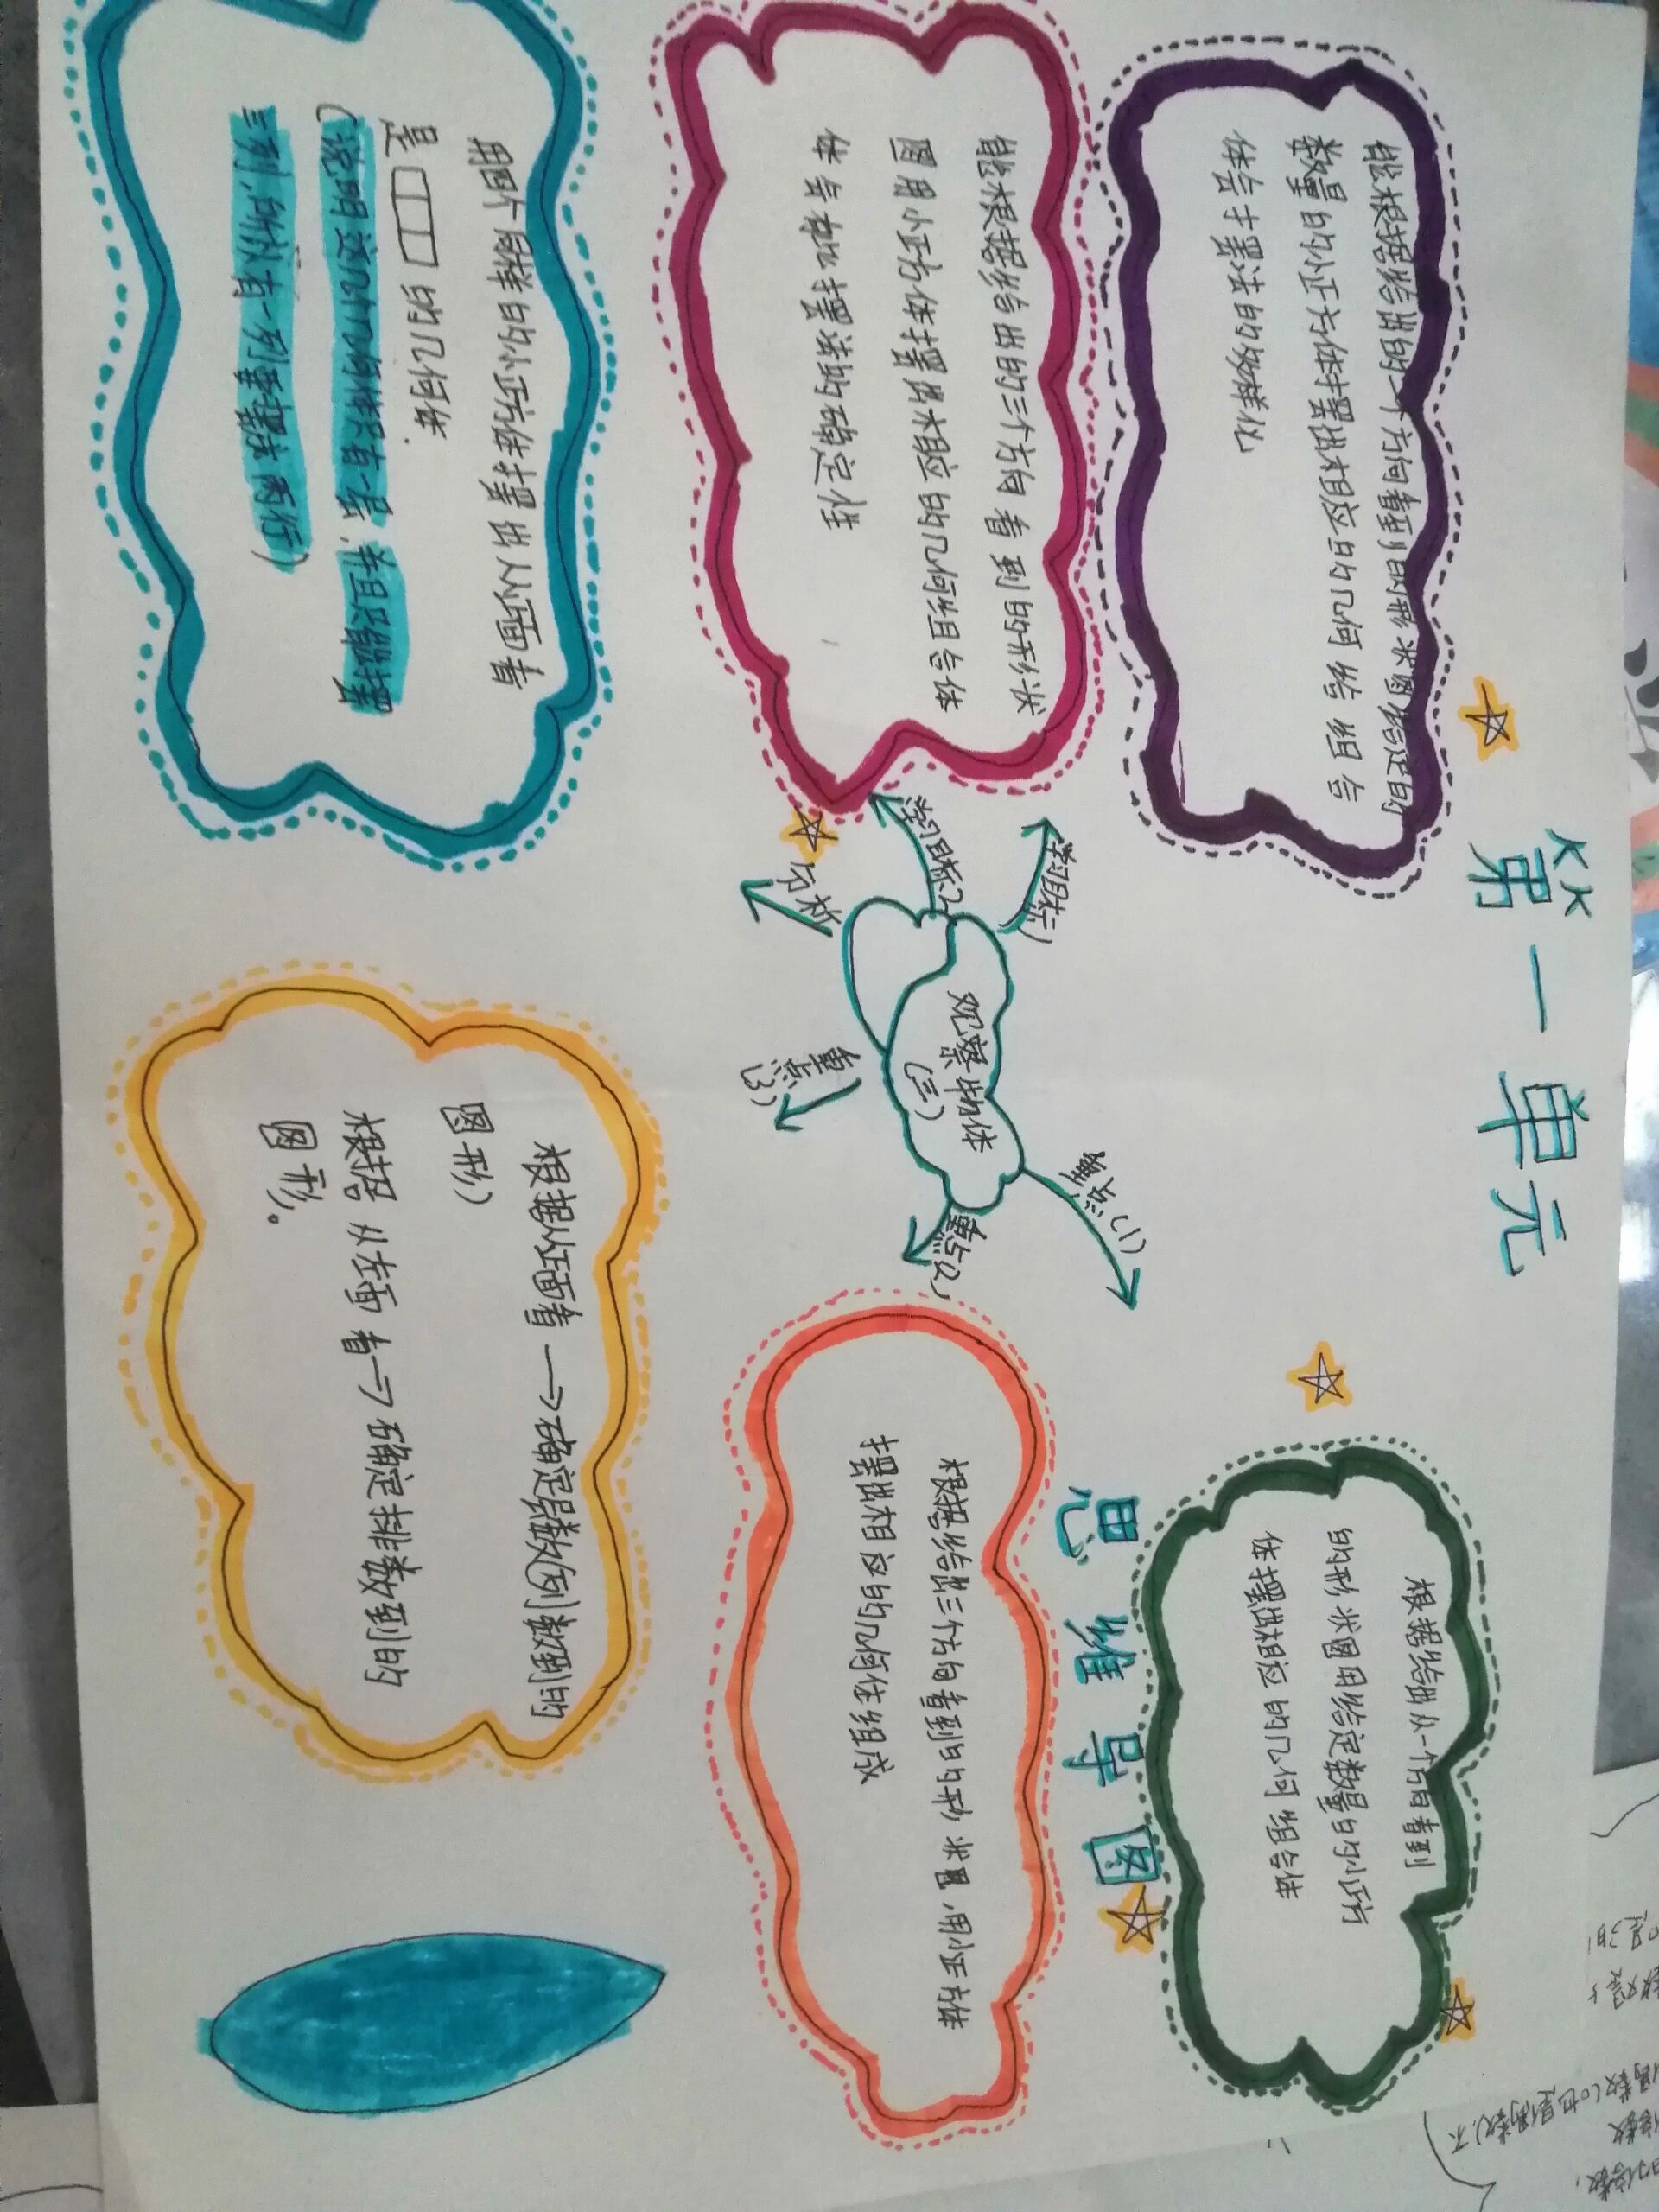 第一单元
思维导图
观察物体
(三)
学习目标1
能根据给出的一个方向看到的形状图给定的
数量的小正方体摆出相应的几何给组合
体会于摆法的多样化
学习目标2
能根据给出的三个方向看到的形状
图用小正方体摆出相应的几何组合体
体会有些摆法的确定性
分析
用四个同样的小正方体摆出从正面看
是 的几何体.
(说明这几何体只有一层,并且只能摆
三列,所以有一列要摆两行)
重点(1)
根据给出从一个方向看到
的形状图用给定数量的小正方
体摆出相应的几何组合体
重点(2)
根据给出三个方向看到的形状图,用小正方体
摆出相应的几何体组成
重点
(3)
根据从正面看→确定层数列数到的
图形)
根据从左面看→确定排数到的
图形。
偶数(0也是偶数),不